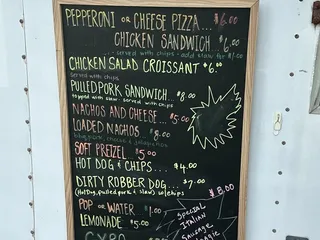 PEPPERONI OR CHEESE PIZZA... $6.00
CHICKEN SANDWICH... $6.00
served with chips - add slaw for $1.00
CHICKEN SALAD CROISSANT $6.00
served with chips
PULLED PORK SANDWICH... $8.00
topped with slaw - served with chips
NACHOS AND CHEESE... $5.00
LOADED NACHOS... $8.00
pork, cheese & jalapeños
SOFT PRETZEL... $5.00
HOT DOG & CHIPS... $4.00
DIRTY ROBBER DOG... $7.00
(Hot Dog, pulled pork & slaw) w/chips
$8.00
POP OR WATER... $1.00
LEMONADE $5.00
SPECIAL
ITALIAN
SAUSAGE
GYRO